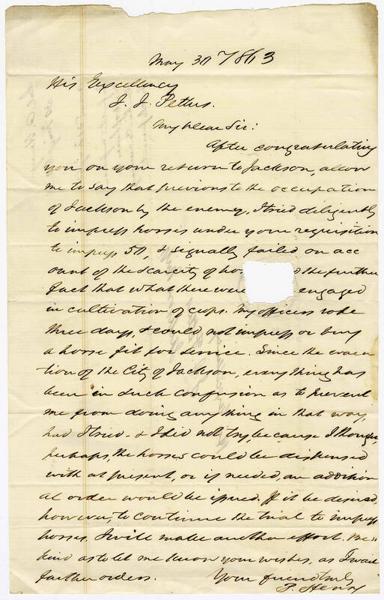 May 30 1863
His Excellency
J. J. Pettus.
My Dear Sir:
After congratulating
you on your return to Jackson, allow
me to say that previous to the occupation
of Jackson by the enemy, I tried diligently
to impress horses under your requisition
to impress 50, & signally failed on acc
ount of the scarcity of the further
fact that what there were engaged
in cultivation of crops. My officers rode
three days, & could not impress or buy
a horse fit for service. Since the evacua
tion of the City of Jackson, everything has
been in such confusion as to prevent
me from doing anything in that way,
had I tried. & I did not try, because I thought
perhaps, the horses could be dispensed
with at present, or if needed, an addition
al order would be issued. If it be desired,
however, to continue the trial to impress
horses, I will make another effort. Be
kind as to let me know your wishes, as I await
further orders.
Your friend truly
P. Henry